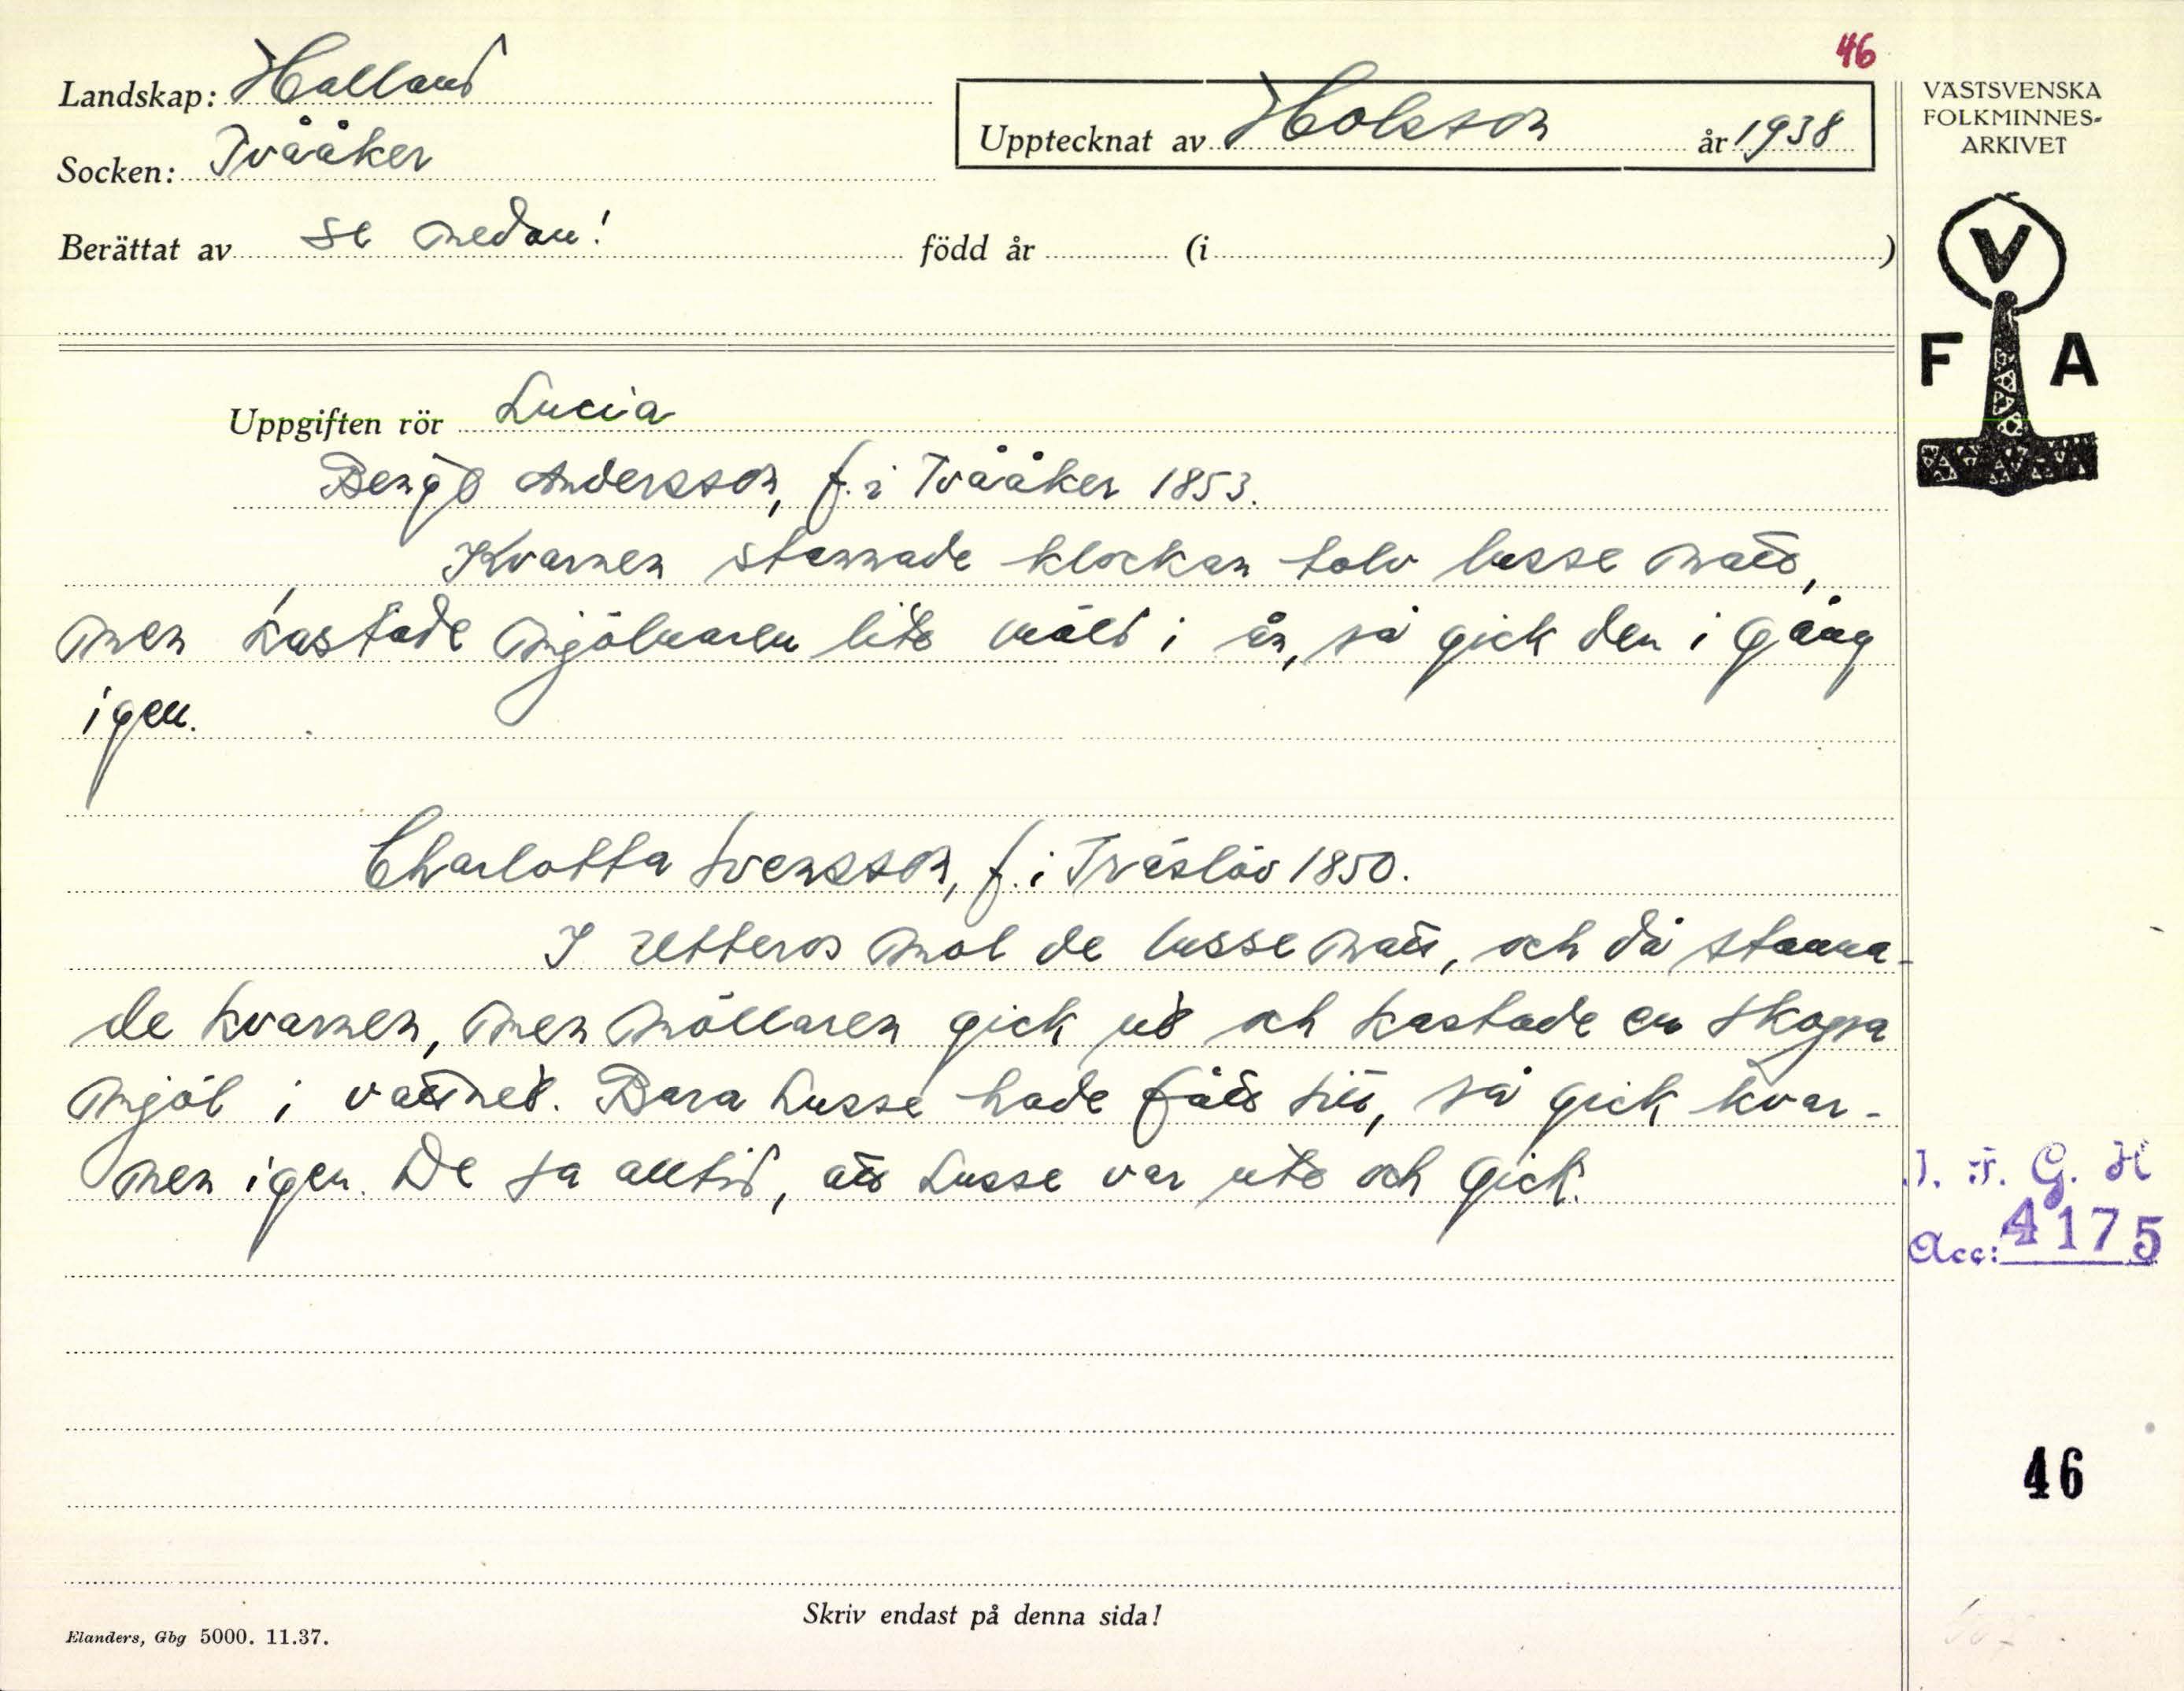 46
Landskap: Halland
Socken: Tvååker
Upptecknat av Holsson år 1938
Berättat av se nedan! född år (i )
VÄSTSVENSKA
FOLKMINNES-
ARKIVET
V
F A
Uppgiften rör Lucia
Bengt Andersson, f. i Tvååker 1853.
Kvarnen stannade klockan tolv lusse natt,
men kastade mjölnaren lite mält i ån, så gick den i gång
igen.
Charlotta Svensson, f. i Träslöv 1850.
I Utteros mol de lusse natt, och då stanna-
de kvarnen, men möllaren gick ut och kastade en skopa
mjöl i vattnet. Bara Lusse hade fått sitt, så gick kvar-
nen igen. De sa alltid, att Lusse var ute och gick.
I. F. G. H
Acc: 4175
46
Skriv endast på denna sida!
Elanders, Gbg 5000. 11.37.